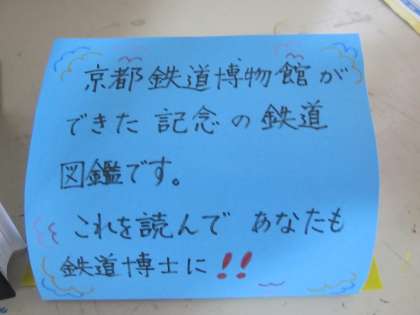 京都鉄道博物館が
できた記念の鉄道
図鑑です。
これを読んで あなたも
鉄道博士に!!